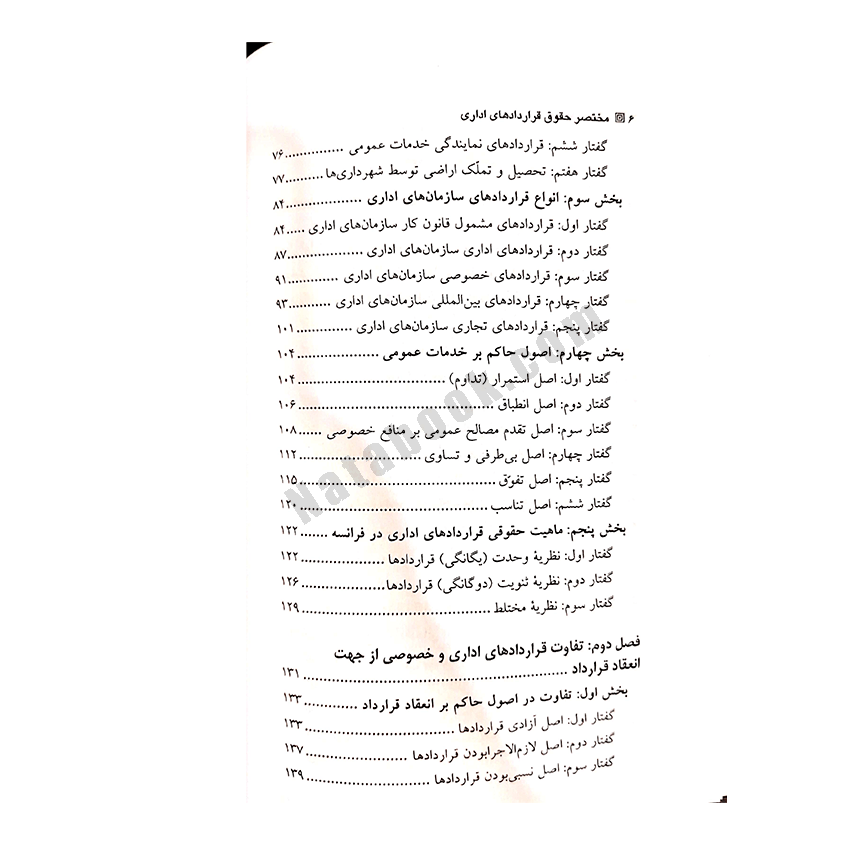 ۶ مختصر حقوق قراردادهای اداری
گفتار ششم: قراردادهای نمایندگی خدمات عمومی ............... ۷۶
گفتار هفتم: تحصیل و تملّک اراضی توسط شهرداری‌ها .......... ۷۷
بخش سوم: انواع قراردادهای سازمان‌های اداری ................... ۸۴
گفتار اول: قراردادهای مشمول قانون کار سازمان‌های اداری ..... ۸۴
گفتار دوم: قراردادهای اداری سازمان‌های اداری ................... ۸۷
گفتار سوم: قراردادهای خصوصی سازمان‌های اداری ............. ۹۱
گفتار چهارم: قراردادهای بین‌المللی سازمان‌های اداری ........... ۹۳
گفتار پنجم: قراردادهای تجاری سازمان‌های اداری .............. ۱۰۱
بخش چهارم: اصول حاکم بر خدمات عمومی .................... ۱۰۴
گفتار اول: اصل استمرار (تداوم) ................................... ۱۰۴
گفتار دوم: اصل انطباق ............................................. ۱۰۶
گفتار سوم: اصل تقدم مصالح عمومی بر منافع خصوصی ...... ۱۰۸
گفتار چهارم: اصل بی‌طرفی و تساوی ............................ ۱۱۲
گفتار پنجم: اصل تفوّق ............................................. ۱۱۵
گفتار ششم: اصل تناسب ........................................... ۱۲۰
بخش پنجم: ماهیت حقوقی قراردادهای اداری در فرانسه ....... ۱۲۲
گفتار اول: نظریهٔ وحدت (یگانگی) قراردادها .................... ۱۲۲
گفتار دوم: نظریهٔ ثنویت (دوگانگی) قراردادها .................... ۱۲۶
گفتار سوم: نظریهٔ مختلط ........................................... ۱۲۹
فصل دوم: تفاوت قراردادهای اداری و خصوصی از جهت
انعقاد قرارداد ............................................................ ۱۳۱
بخش اول: تفاوت در اصول حاکم بر انعقاد قرارداد ............. ۱۳۳
گفتار اول: اصل آزادی قراردادها ................................... ۱۳۳
گفتار دوم: اصل لازم‌الاجرابودن قراردادها ........................ ۱۳۷
گفتار سوم: اصل نسبی‌بودن قراردادها ............................. ۱۳۹
Natabook.com